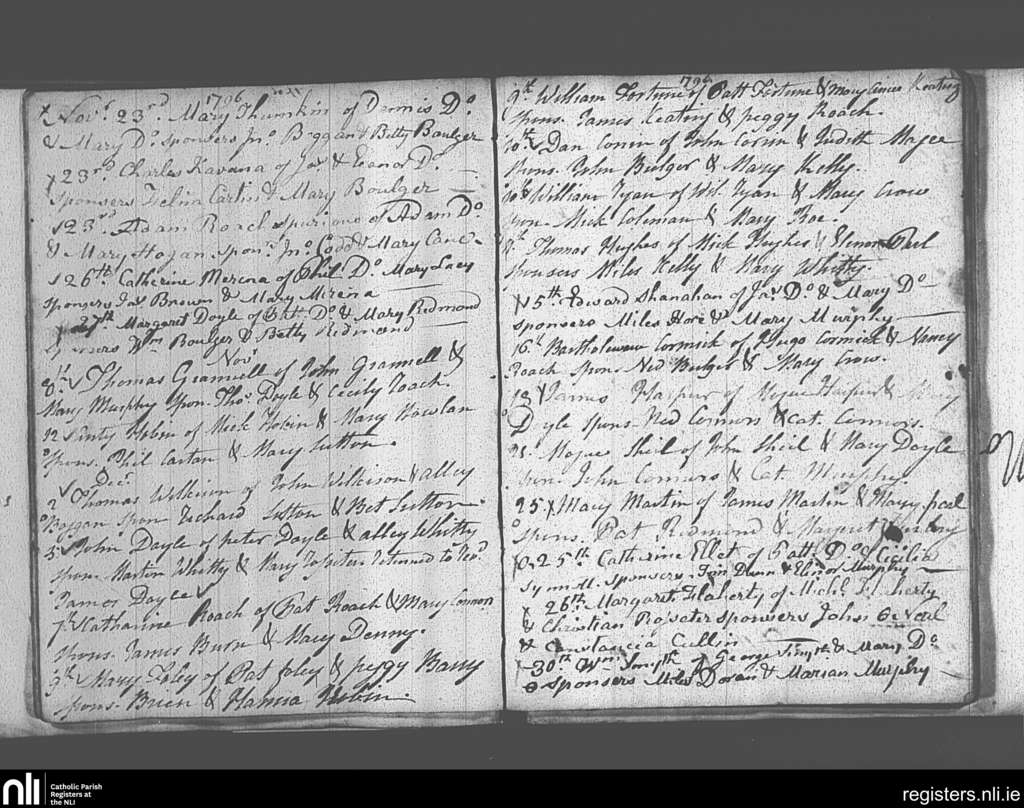 1796
Novr. 23rd. Mary Thumkin of Dennis Do.
& Mary Do. sponsers Jno. Boggan & Betty Boulger
23rd Charles Kavana of Jas. & Eleanor Do.
Sponsers Felin Carlin & Mary Boulger
23rd. Adam Roach spurious of Adam Do.
& Mary Hogan sponrs. Jno. Codd & Mary
26th. Catherine Merena of Phil. Do. Mary Lacy
sponsers Jas Brown & Mary Mirena
27th Margaret Doyle of Patt. Do. & Mary Redmond
Wm. Boulger & Betty Redmond
Novr
8th. Thomas Gramell of John Gramell &
Mary Murphy Spon. Thos. Doyle & Cecily Roach.
12 Hobin of Mick Hobin & Mary Nowlan
Spons. Phil Cartan & Mary Sutton.
Decr.
2 Thomas Wilkison of John Wilkison & alley
Boggan spon Richard Sutton & Bet Sutton
5 John Doyle of peter Doyle & alley Whitty
spon. Martin Whitty & Mary returned to
James Doyle
7th Catharine Roach of Pat Roach & Mary Connors
spons. James Burn & Mary Denny.
9th Mary Foley of Pat foley & peggy Barry
spons. Brien & Hobin.
1796
9th William Fortune of Patt Fortune & Mary Keating
spons. James Keating & peggy Roach.
10th Dan of John & Judith Magee
spons. John Bulger & Mary Kelly.
10th William Ryan of Wil. Ryan & Mary Crow
spon. Mick Coleman & Mary Roe.
Thomas Hughes of Mick Hughes & Elenor
sponsers Miles Kelly & Mary Whitty.
15th. Edward Shanahan of Jas. Do. & Mary Do
sponsers Miles Hore & Mary Murphy
16th Bartholemew Cormick of Hugo Cormick & Nancy
Roach spon. Ned Bulger & Mary Crow.
18 James Harpur of Mogue Harpur & Mary
Doyle spons. Ned Connors & Cat. Connors.
21. Mogue Sheil of John Sheil & Mary Doyle
spon. John Connors & Cat. Murphy.
25 Mary Martin of James Martin & Mary peel
spons. Pat Redmond & Margret
25th Catharine Ellet of Patt. Do. &
Synnott. sponsers. Dunn & Elinor Murphy
26th. Margaret Flaherty of Michl. Flaherty
& Christian Rossiter sponsers John O Neal
& Constancia Cullin
30th Wm. Smyth of George Smyth & Mary Do
sponsers Miles Doran & Marian Murphy
nli
Catholic Parish
Registers at
the NLI
registers.nli.ie